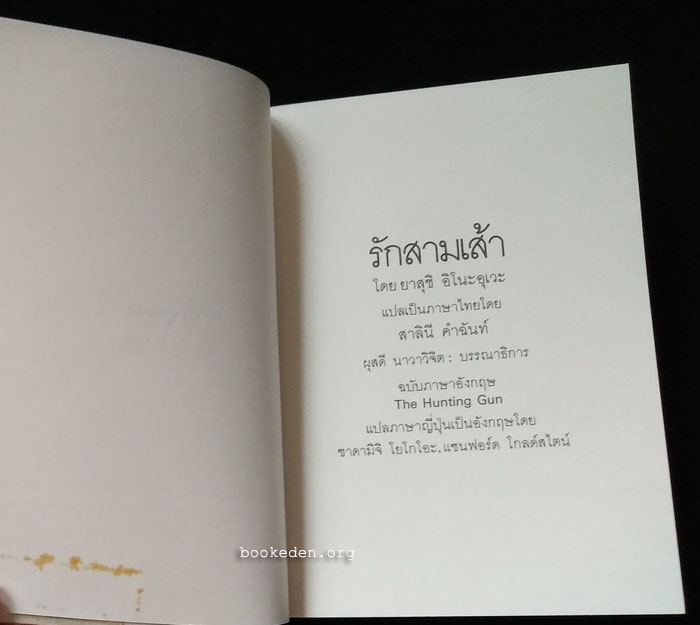 รักสามเส้า
โดย ยาสุชิ อิโนะอุเวะ
แปลเป็นภาษาไทยโดย
สาลินี คำฉันท์
ผุสดี นาวาวิจิต : บรรณาธิการ
ฉบับภาษาอังกฤษ
The Hunting Gun
แปลภาษาญี่ปุ่นเป็นอังกฤษโดย
ซาดามิจิ โยโกโอะ, แซนฟอร์ด โกลด์สไตน์
bookeden.org